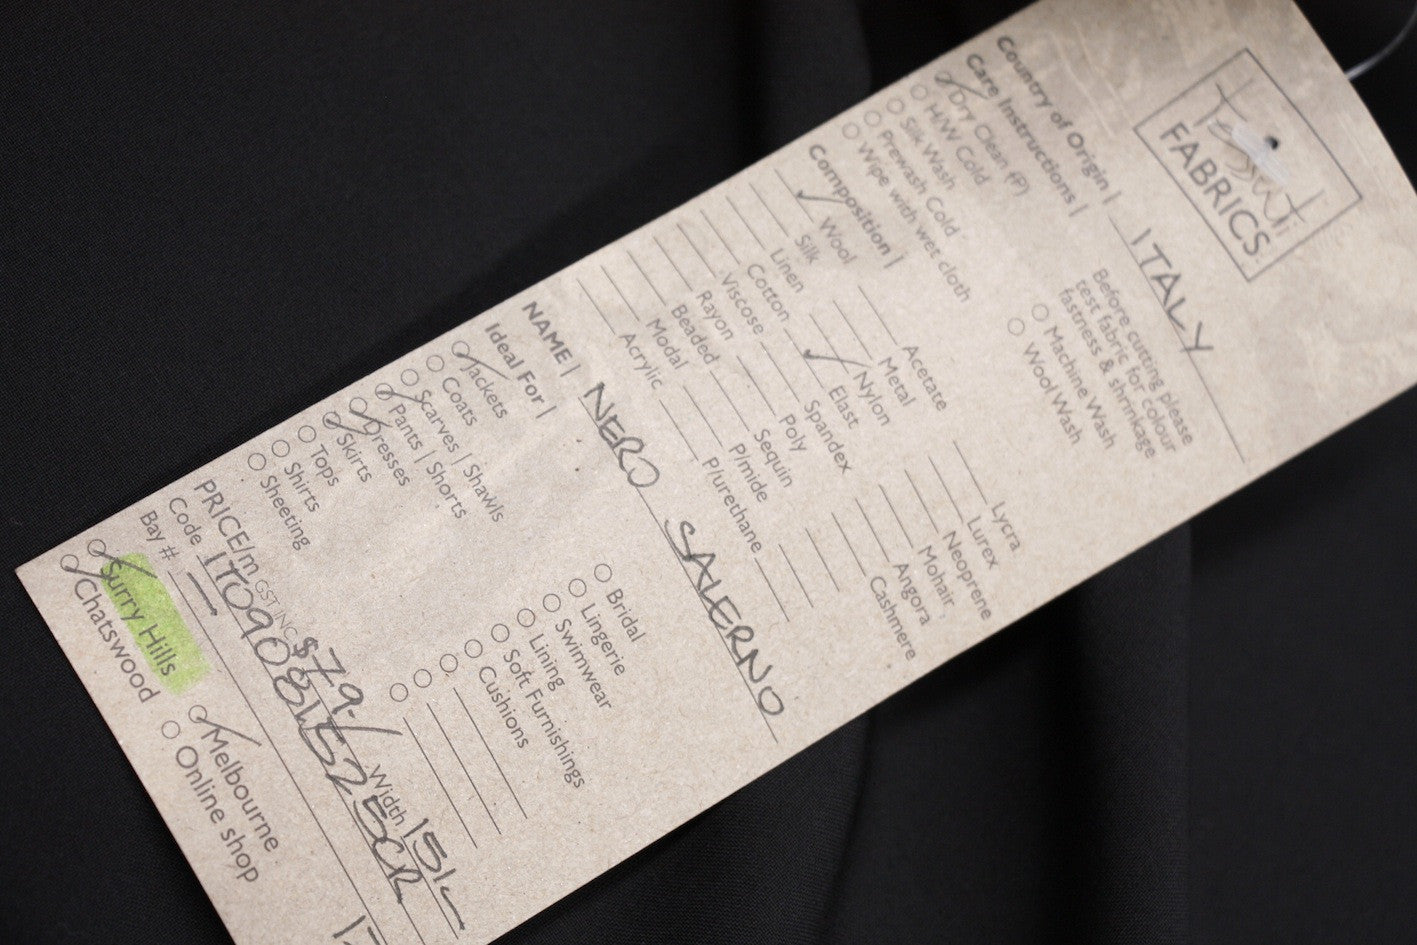 Tessuti
FABRICS
Country of Origin | ITALY
Care Instructions |
Dry Clean (P)
H/W Cold
Silk Wash
Prewash Cold
Wipe with wet cloth
Before cutting please
test fabric for colour
fastness & shrinkage
Machine Wash
Wool Wash
Composition |
Wool
Silk
Linen
Cotton
Viscose
Rayon
Beaded
Modal
Acrylic
Acetate
Metal
Nylon
Elast
Spandex
Poly
Sequin
P/mide
P/urethane
Lycra
Lurex
Neoprene
Mohair
Angora
Cashmere
NAME | NERO SALERNO
Ideal For |
Jackets
Coats
Scarves | Shawls
Pants | Shorts
Dresses
Skirts
Tops
Shirts
Sheeting
Bridal
Lingerie
Swimwear
Lining
Soft Furnishings
Cushions
PRICE/m GST INC $79.- Width 151-
Code
Bay # -
Surry Hills
Chatswood
Melbourne
Online shop